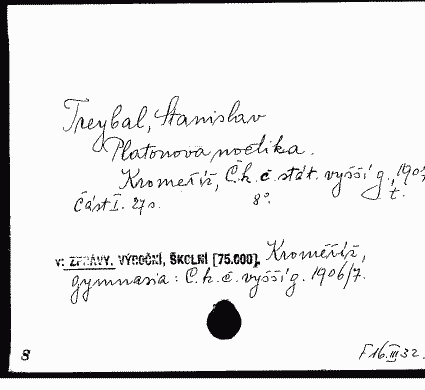 Treybal, Stanislav
Platonova noetika.
Kroměříž, C.k.č. stát. vyšší g., 190
část I. 27 s. 8°. t.
v: ZPRÁVY, VÝROČNÍ, ŠKOLNÍ [75.000], Kroměříž,
gymnasia: C.k.č. vyšší g. 1906/7.
8
F16.III32.